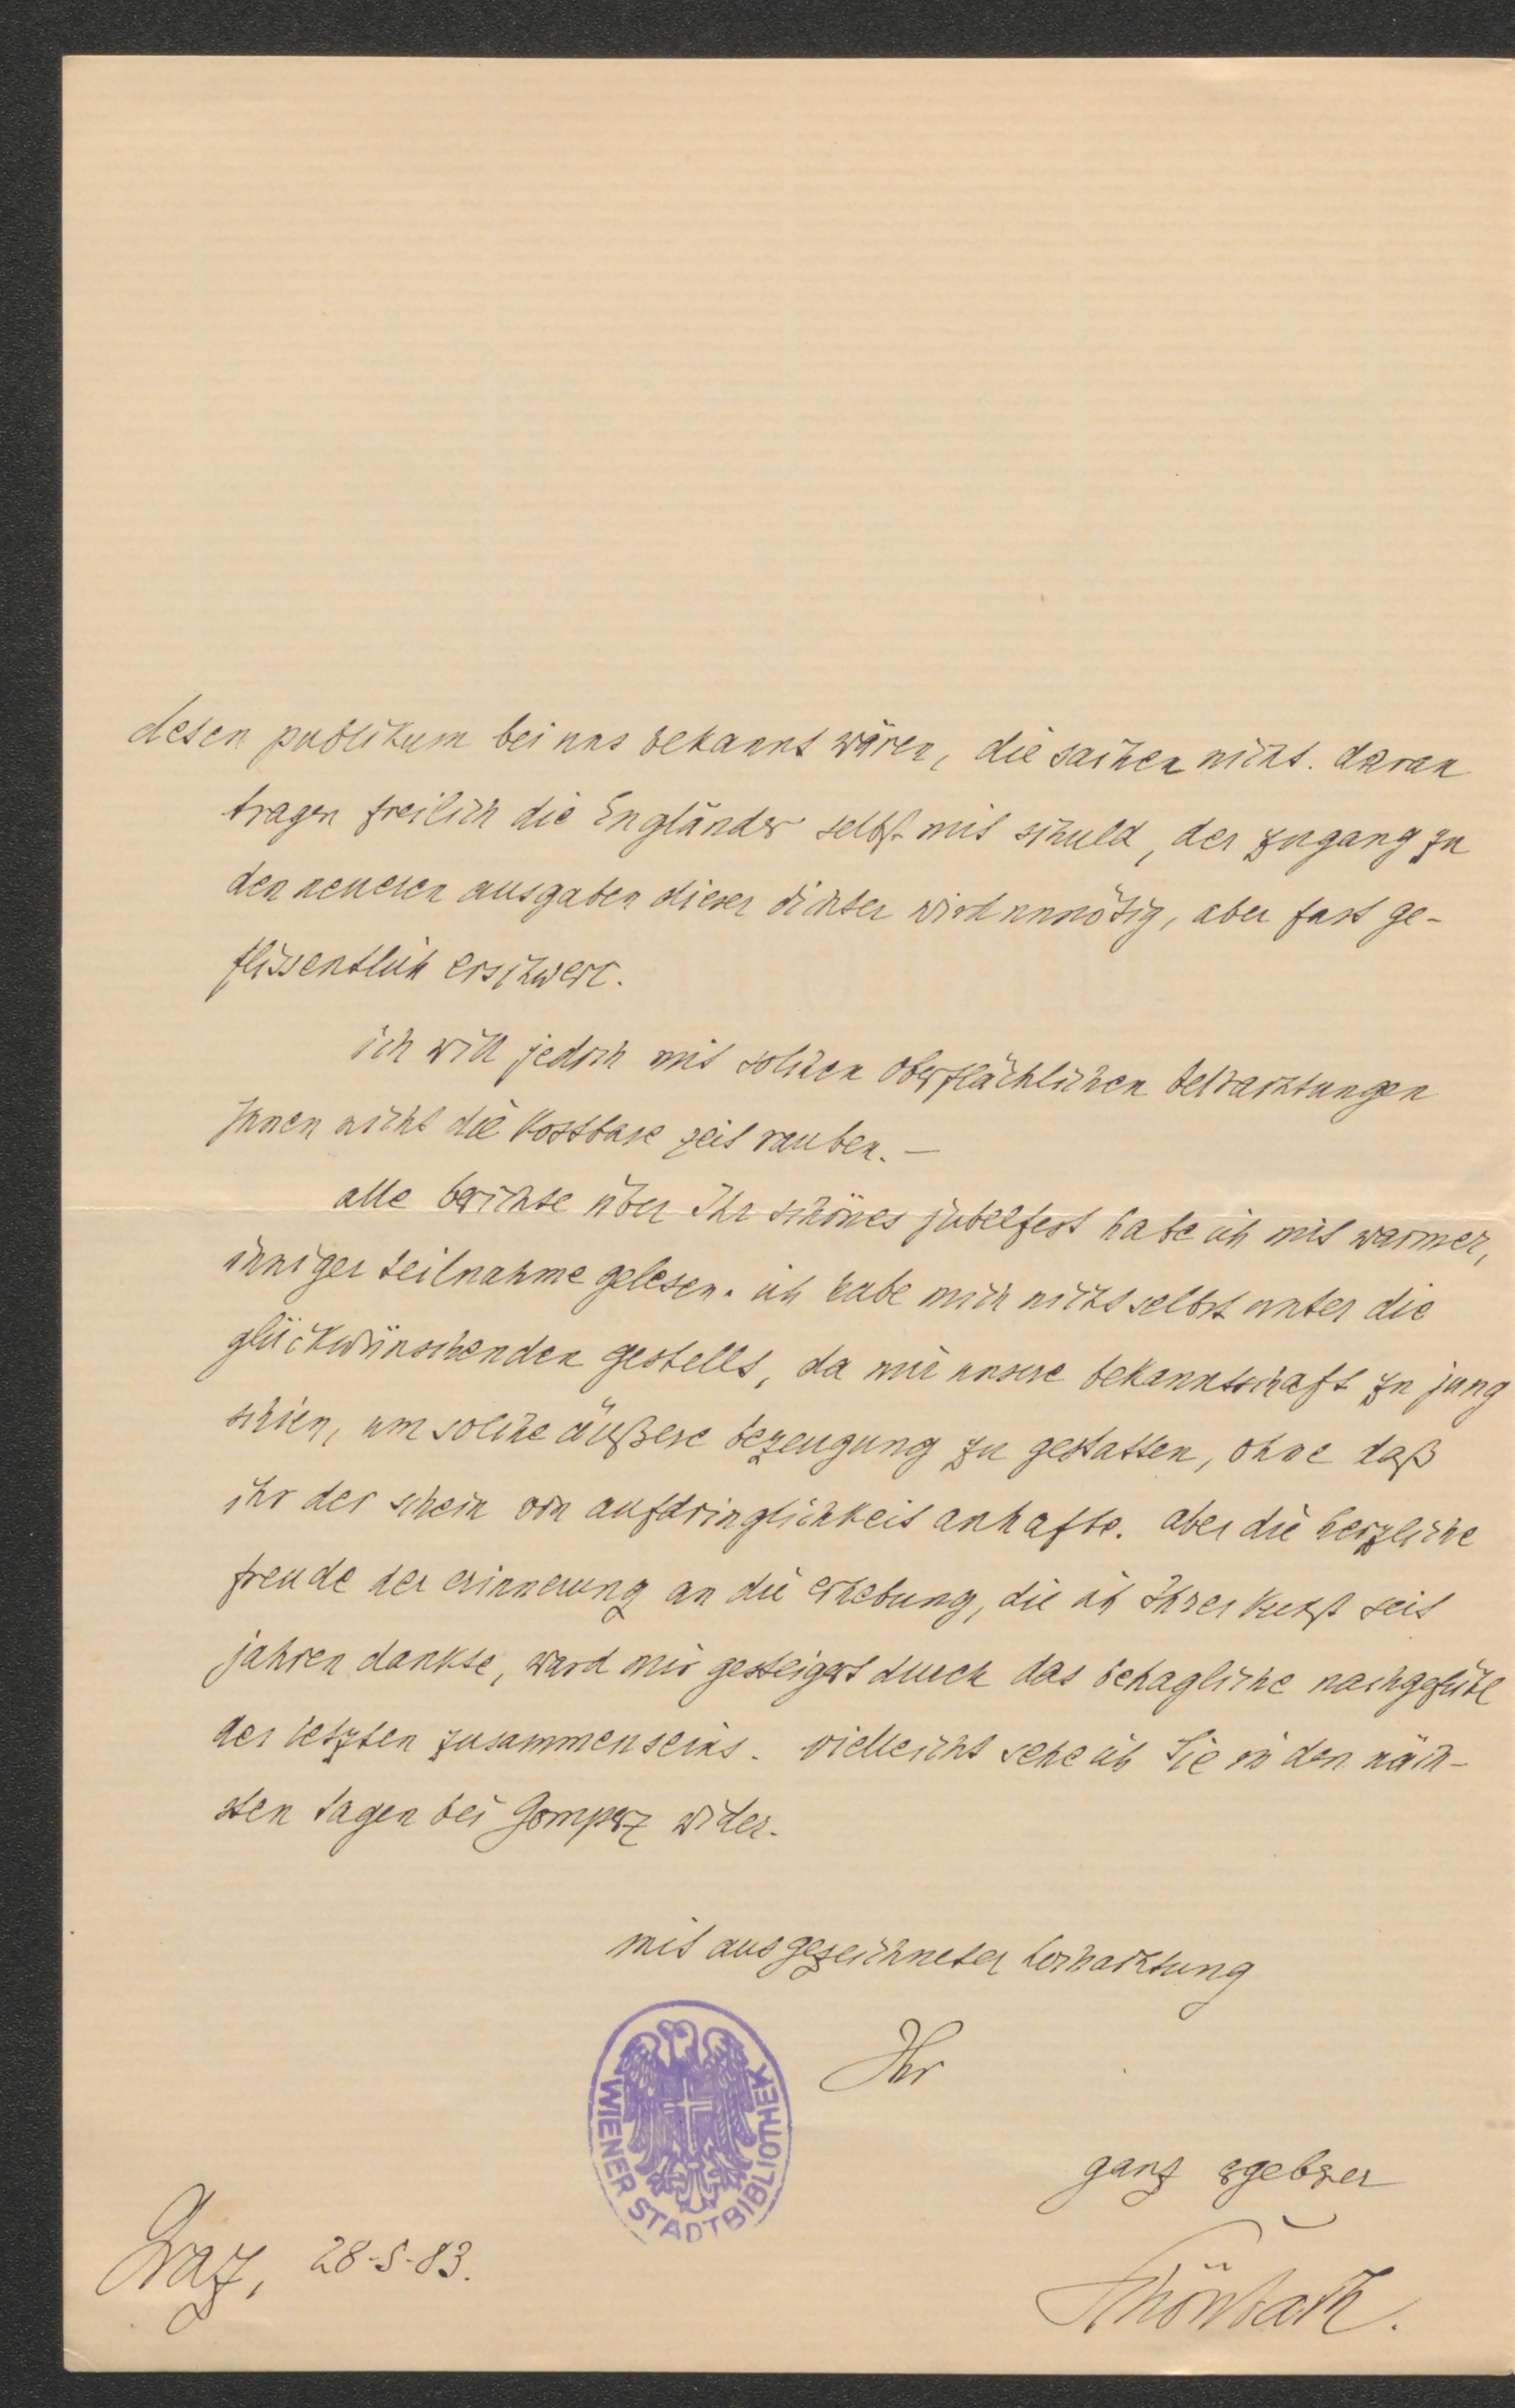 desen publikum bei uns bekannt wären, die sachen nicht. daran
tragen freilich die Engländer selbst mit schuld, der zugang zu
den neueren ausgaben dieser dichter wird unnötig, aber fast ge-
flissentlich erschwert.
ich will jedoch mit solchen oberflächlichen betrachtungen
Ihnen nicht die kostbare zeit rauben. —
alle berichte über Ihr schönes jubelfest habe ich mit warmer,
inniger teilnahme gelesen. ich habe mich nicht selbst unter die
glückwünschenden gestellt, da mir unsere bekanntschaft zu jung
schien, um solche äußere bezeugung zu gestatten, ohne daß
ihr der schein von aufdringlichkeit anhafte. aber die herzliche
freude der erinnerung an die erhebung, die ich Ihrer kunst seit
jahren dankte, ward mir gesteigert durch das behagliche nachgefühl
des letzten zusammenseins. vielleicht sehe ich Sie in den näch-
sten tagen bei Gomperz wider.
mit ausgezeichneter hochachtung
Ihr
ganz ergebner
Schönbach.
Graz, 28.5.83.
WIENER STADTBIBLIOTHEK